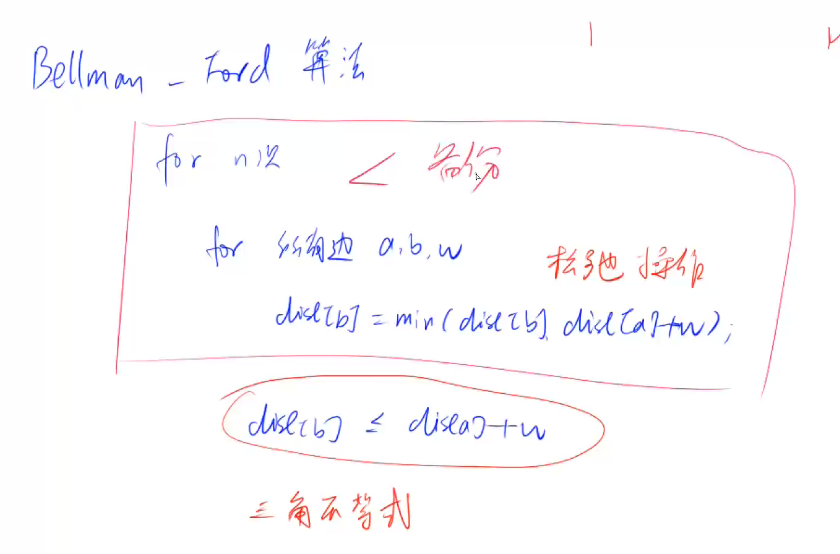 Bellman - Ford 算法
for n次 < 备份
for 所有边 a,b,w 松弛操作
dist[b] = min(dist[b], dist[a]+w);
dist[b] ≤ dist[a]+w
三角不等式